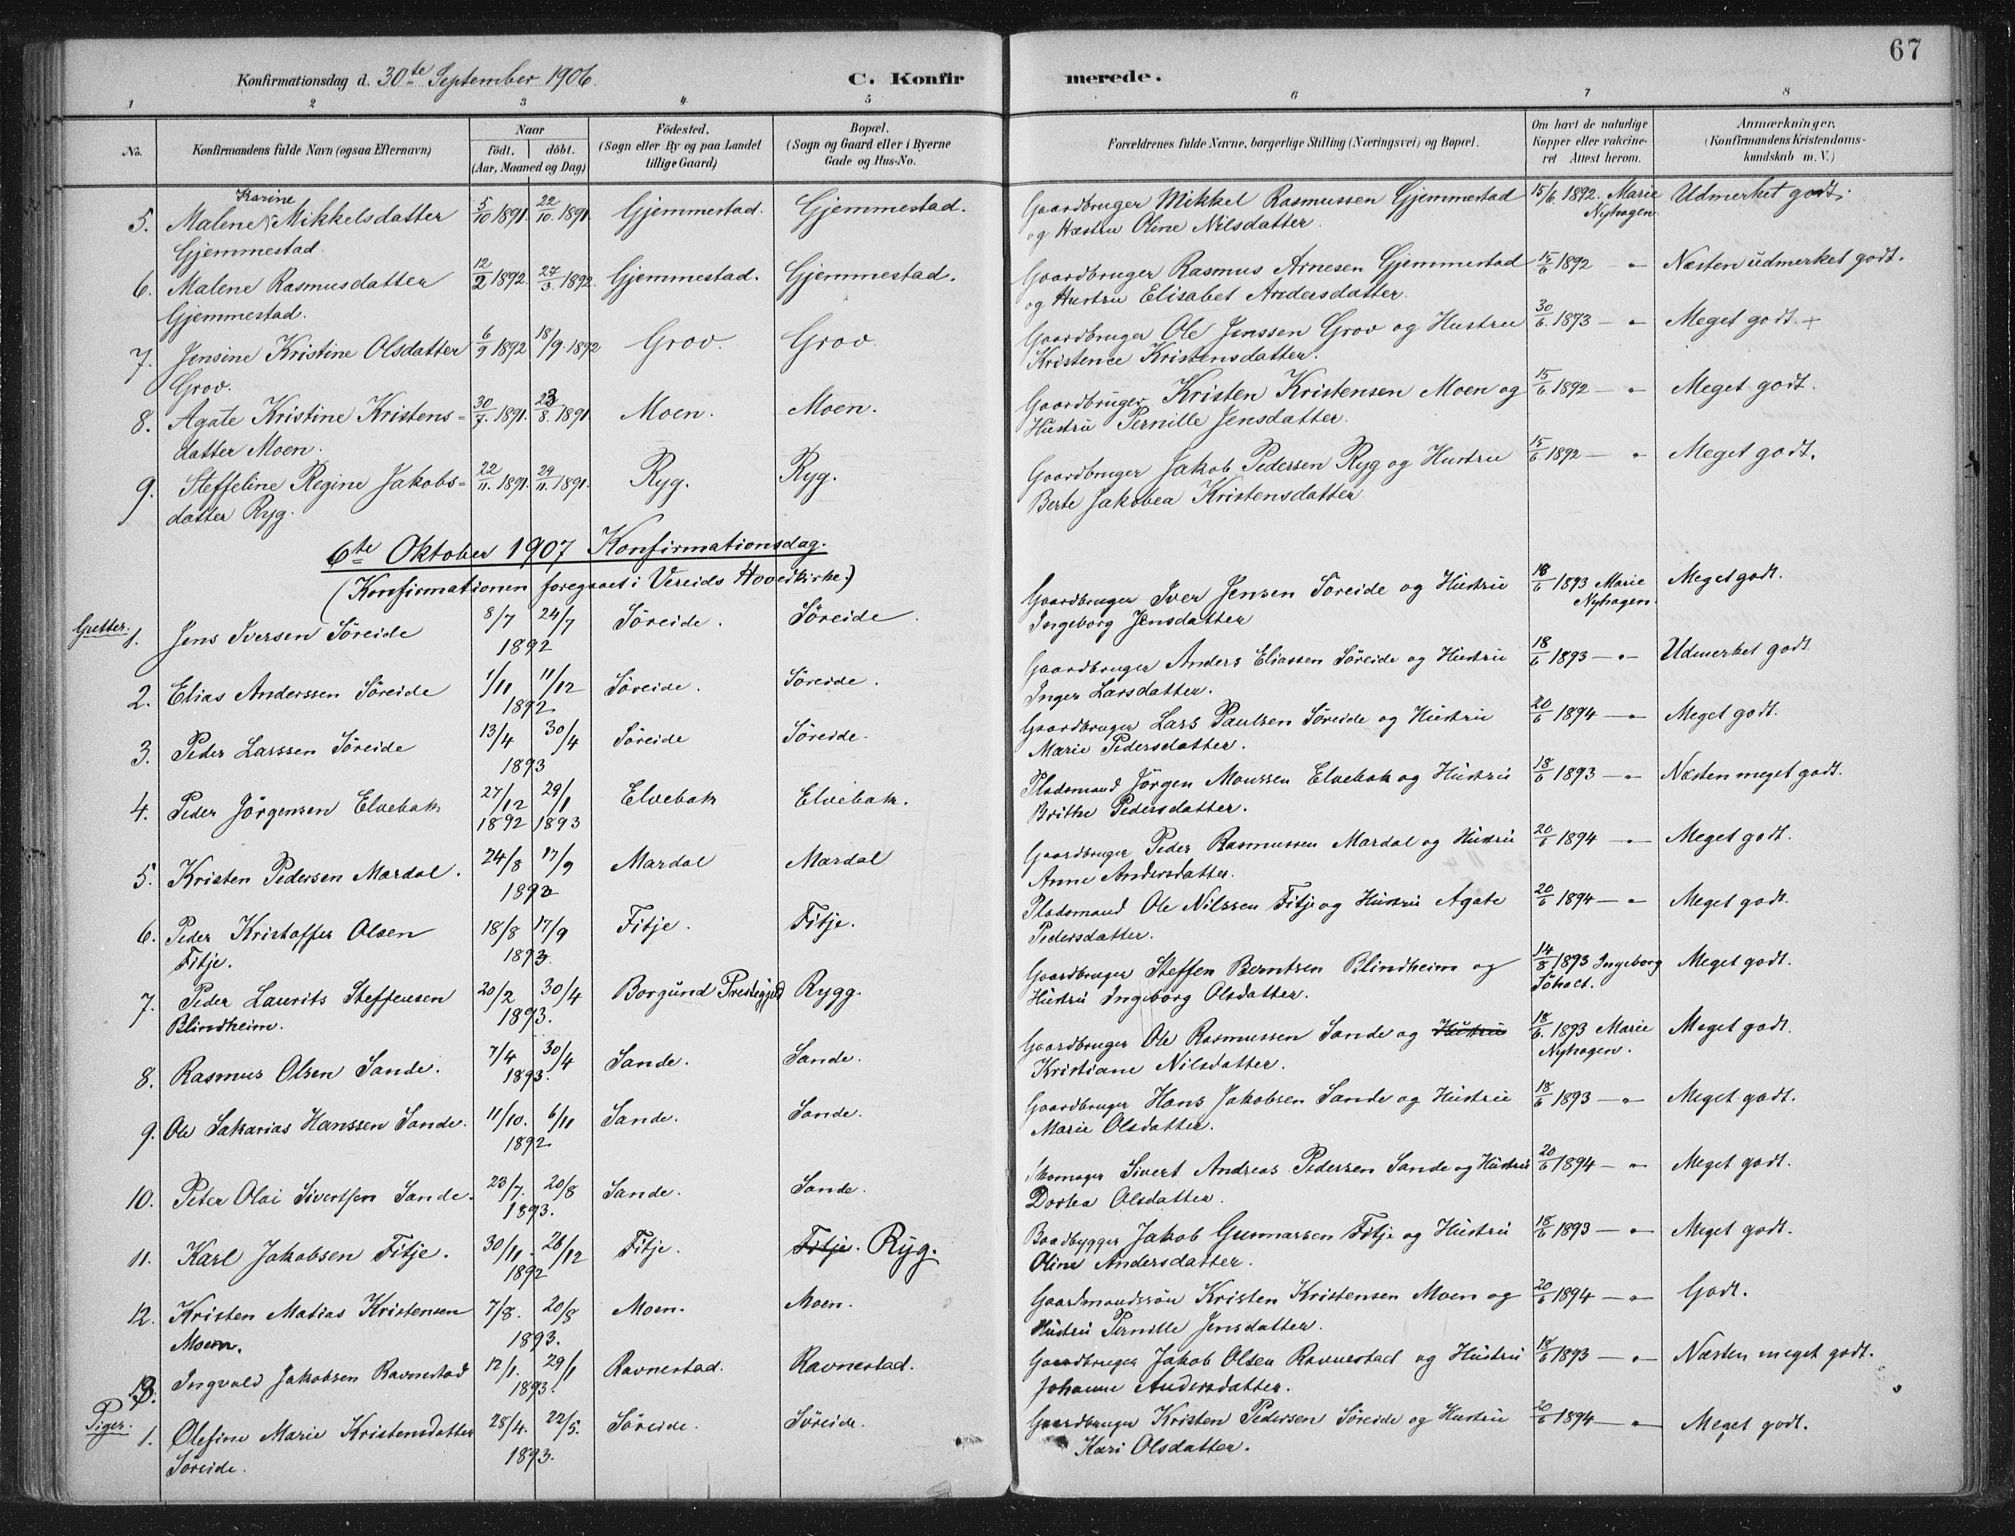 67
Konfirmationsdag d. 30te September 1906.
C. Konfirmerede.
1 2 3 4 5 6 7 8
No.
Konfirmandens fulde Navn (ogsaa Efternavn)
Naar
födt. döbt.
(Aar, Maaned og Dag)
Födested.
(Sogn eller By og paa Landet
tillige Gaard)
Bopæl.
(Sogn og Gaard eller i Byerne
Gade og Hus-No.
Forældrenes fulde Navne, borgerlige Stilling (Næringsvei) og Bopæl.
Om havt de naturlige
Kopper eller vakcine-
ret Attest herom.
Anmærkninger.
(Konfirmandens Kristendoms-
kundskab m. V.)
Karine
5. Malene Mikkelsdatter 5/10 1891. 22/10. 1891. Gjemmestad. Gjemmestad. Gaardbruger Mikkel Rasmussen Gjemmestad 15/6. 1892. Marie Udmerket godt.
Gjemmestad. og Hustru Oline Nilsdatter. Nyhagen.
6. Malene Rasmusdatter 12/2 1892. 27/3. 1892. Gjemmestad. Gjemmestad. Gaardbruger Rasmus Arnesen Gjemmestad 15/6 1892 — " Næsten udmerket godt.
Gjemmestad. og Hustru Elisabet Andersdatter.
7. Jensine Kristine Olsdatter 6/9 1892 18/9. 1892 Grov. Grov. Gaardbruger Ole Jenssen Grov og Hustru 30/6. 1873 — " Meget godt. +
Grov. Kristence Kristensdatter.
8. Agate Kristine Kristens= 30/7. 1891. 23/8. 1891. Moen. Moen. Gaardbruger Kristen Kristensen Moen og 15/6. 1892 — " Meget godt.
datter Moen. Hustru Pernille Jensdatter.
9. Steffeline Regine Jakobs= 22/11. 1891. 29/11. 1891. Ryg. Ryg. Gaardbruger Jakob Pedersen Ryg og Hustru 15/6 1892 — " Meget godt.
datter Ryg. Berte Jakobea Kristensdatter.
6te Oktober 1907 Konfirmationsdag.
(Konfirmationen foregaaet i Vereids Hovedkirke.)
Gutter.
1. Jens Iversen Söreide 8/7 24/7 Söreide. Söreide. Gaardbruger Iver Jensen Söreide og Hustru 18/6 1893 Marie Meget godt.
1892 Ingeborg Jensdatter Nyhagen.
2. Elias Anderssen Söreide 1/11 11/12 Söreide. Söreide. Gaardbruger Anders Eliassen Söreide og Hustru 18/6 1893 — " — Udmerket godt
1892 Inger Larsdatter.
3. Peder Larssen Söreide 13/4 30/4 Söreide Söreide. Gaardbruger Lars Paulsen Söreide og Hustru 20/6 1894 — " Meget godt.
1893 Marie Pedersdatter.
4. Peder Jörgensen Elvebak 27/12 29/1 Elvebak Elvebak. Pladsmand Jörgen Monssen Elvebak og Hustru 18/6 1893 — " Næsten meget godt.
1892 1893 Brithe Pedersdatter.
5. Kristen Pedersen Mardal. 24/8 17/9 Mardal Mardal Gaardbruger Peder Rasmussen Mardal og Hustru 20/6 1894 — " Meget godt.
1892 Anne Andersdatter.
6. Peder Kristoffer Olsen 18/8 17/9 Fitje. Fitje. Pladsmand Ole Nilssen Fitje og Hustru Agate 20/6 1894 — " Meget godt.
Fitje. 1893 Pedersdatter.
7. Peder Laurits Steffensen 20/2 30/4 Borgund Prestegjeld Rygg. Gaardbruger Steffen Berntsen Blindheim og 14/8 1893 Ingeborg Meget godt.
Blindheim. 1893. Hustru Ingeborg Olsdatter.
8. Rasmus Olsen Sande. 7/4 30/4 Sande. Sande. Gaardbruger Ole Rasmussen Sande og Hustru 18/6. 1893 Marie Meget godt.
1893. Kristiane Nilsdatter. Nyhagen.
9. Ole Sakarias Hanssen Sande. 11/10. 6/11 Sande. Sande. Gaardbruger Hans Jakobsen Sande og Hustru 18/6 1893 — " Meget godt.
1892 Marie Olsdatter.
10. Peter Olai Sivertsen Sande. 23/7. 20/8 Sande. Sande. Skomager Sivert Andreas Pedersen Sande og Hustru 20/6 1894 — " Meget godt.
1893. Dortea Olsdatter.
11. Karl Jakobsen Fitje. 30/11. 28/12 Fitje. Fitje. Ryg. Baadbygger Jakob Gunnarssen Fitje og Hustru 18/6 1893 — " Meget godt.
1892 Oline Andersdatter.
12. Kristen Matias Kristensen 7/8. 20/8 Moen. Moen. Gaardmandssön Kristen Kristensen Moen og 20/6 1894 — " Godt.
Moen. 1893. Hustru Pernille Jensdatter.
13. Ingvald Jakobsen Ravnestad 12/1. 29/1 Ravnestad. Ravnestad. Gaardbruger Jakob Olsen Ravnestad og Hustru 18/6 1893 — " Næsten meget godt.
1893. Johanne Andersdatter.
Piger.
1. Olefine Marie Kristensdatter 28/4. 22/5. Söreide. Söreide. Gaardbruger Kristen Pedersen Söreide og Hustru 20/6 1894 — " Meget godt.
Söreide. 1893. Kari Olsdatter.